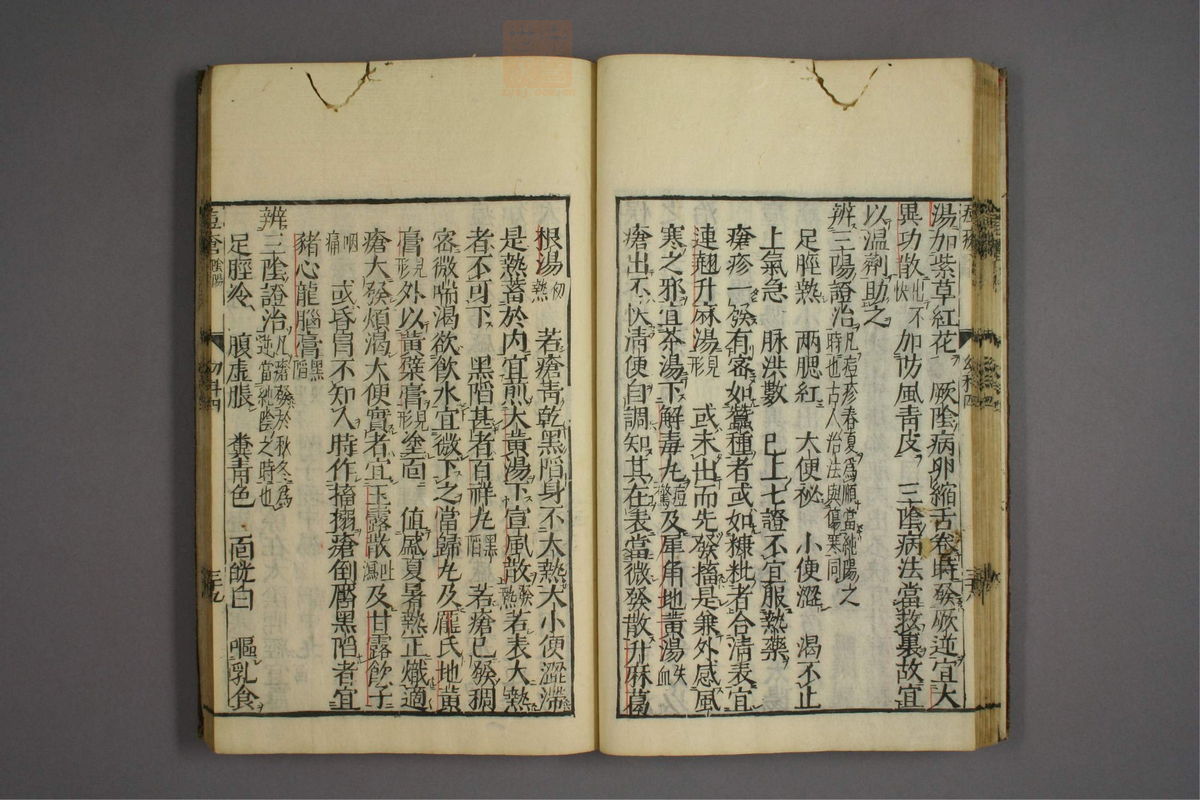 湯加紫草紅花 厥陰病卵縮舌卷時發厥逆宜大
異功散出不快加防風青皮 三陰病法當救裏故宜
以温劑助之
辨三陽證治凡痘疹春夏爲順當純陽之時也古人治法與傷寒同
足脛熱 兩腮紅 大便祕 小便澀 渴不止
上氣急 脉洪數 已上七證不宜服熱藥
瘡疹一發有密如蠶種者或如糠粃者合清表宜
連翹升麻湯見形 或未出而先發搐是兼外感風
寒之邪宜茶湯下解毒丸痘驚及犀角地黄湯失血
瘡出不快清便自調知其在表當微發散升麻葛
根湯初熱 若瘡青乾黑陷身不大熱大小便澀滯
是熱蓄於内宜煎大黄湯下宣風散發熱若表大熱
者不可下 黑陷甚者百祥丸黑陷 若瘡已發稠
密微喘渴欲飲水宜微下之當歸丸及龐氏地黄
膏見形外以黄蘗膏見形塗面 值盛夏暑熱正熾適
瘡大發煩渴大便實者宜玉露散吐瀉及甘露飲子
咽痛 或昏冒不知人時作搐搦瘡倒靨黑陷者宜
豬心龍腦膏黑陷
辨三陰證治凡瘡發於秋冬爲逆當純陰之時也
足脛冷 腹虚脹 糞青色 面㿠白 嘔乳食
痘瘡 陰陽
幼科四
三十九